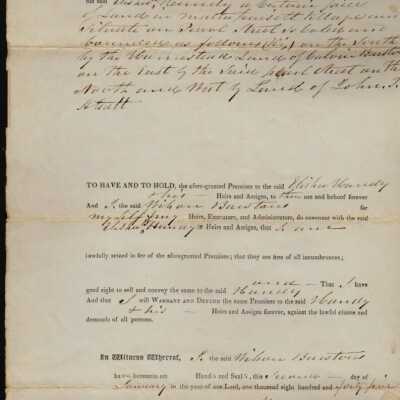 the said Elisha Handy a certain piece
of Land in Mattapoisett village and
Situate on Pearl Street so called and
bounded as follows (viz) on the South
by the Homestead Land of Calvin
on the East by the Said Pearl Street on the
North and West by Land of John
TO HAVE AND TO HOLD, the afore-granted Premises to the said Elisha Handy
& his Heirs and Assigns, to use and behoof forever
And I the said Wilson Barstow for
myself & my Heirs, Executors, and Administrators, do covenant with the said
Elisha Handy & Heirs and Assigns, that I am
lawfully seized in fee of the aforegranted Premises; that they are free of all incumbrances;
and – That I have
good right to sell and convey the same to the said Handy
And that I will WARRANT AND DEFEND the same Premises to the said Handy
& his – Heirs and Assigns forever, against the lawful claims and
demands of all persons.
In Witness Whereof, I the said Wilson Barstow
have hereunto set Hand and Seal, this Second – day of
January in the year of our Lord, one thousand eight hundred and forty five